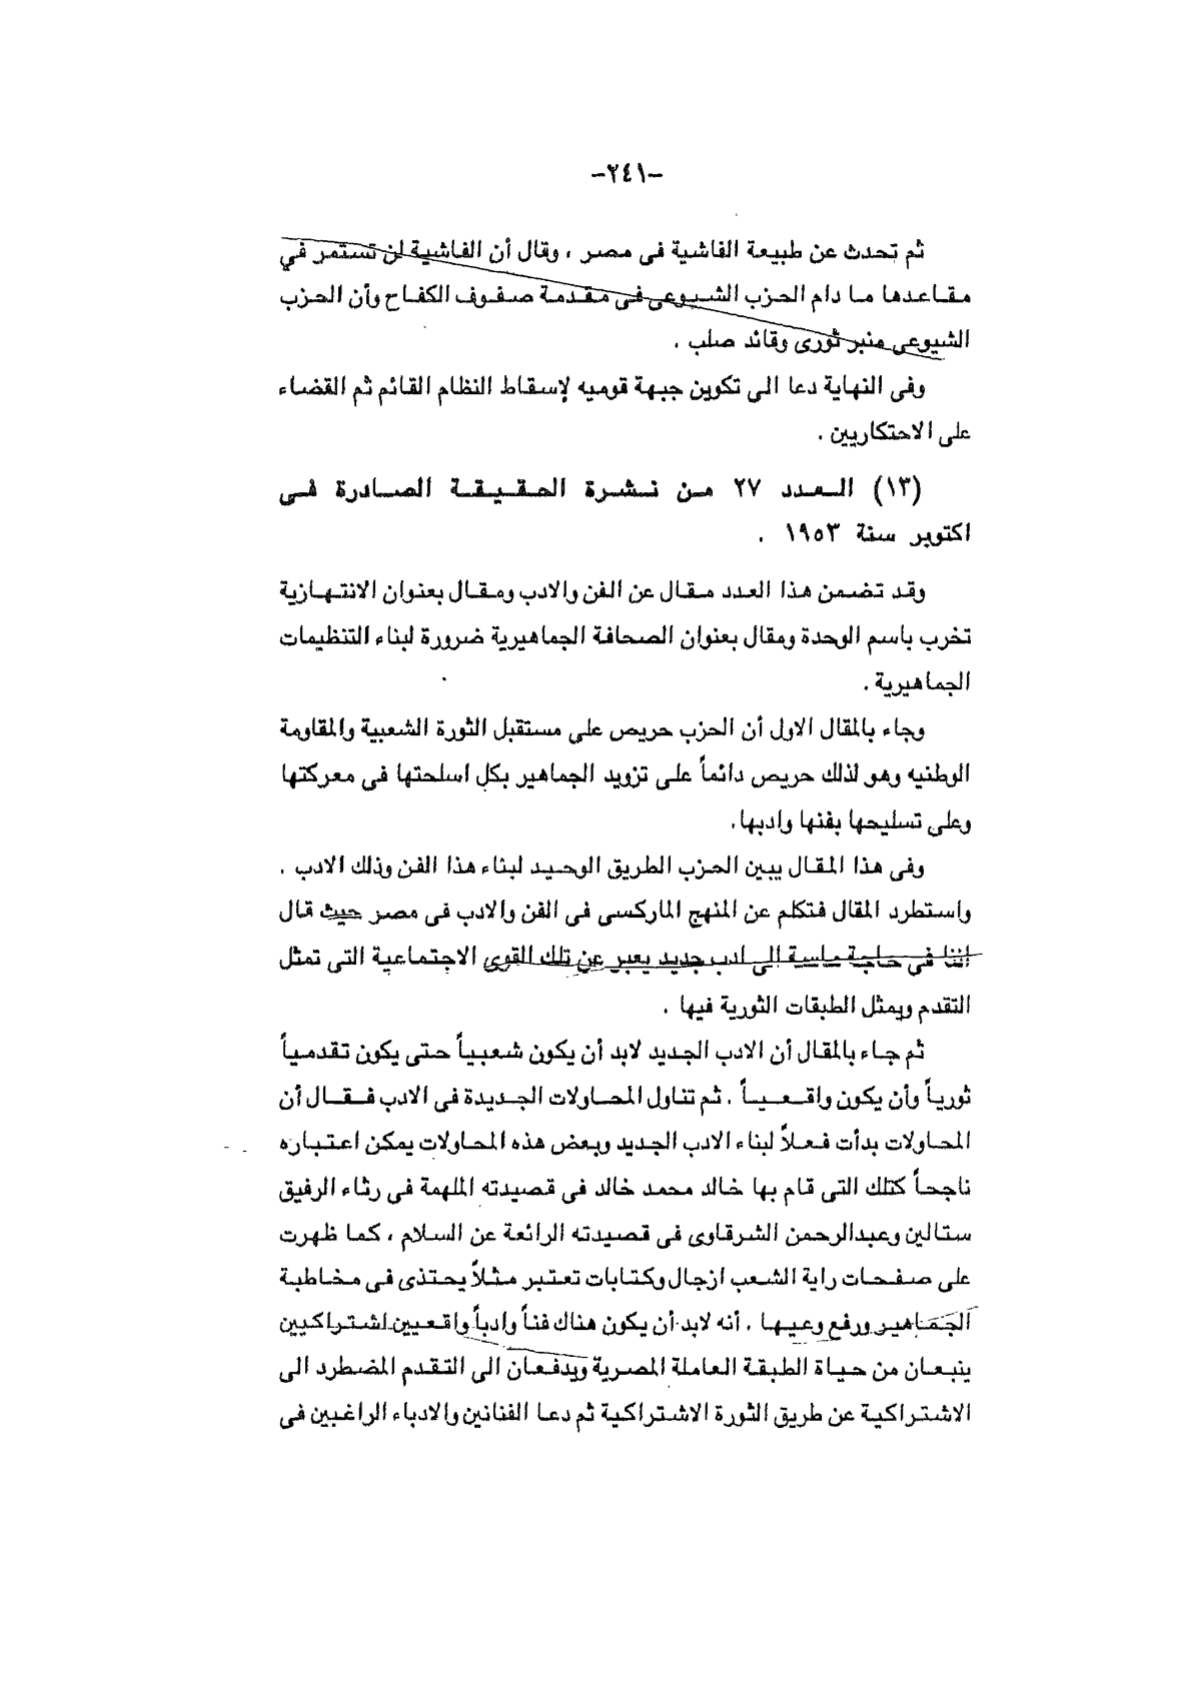 -٢٤١-
ثم تحدث عن طبيعة الفاشية فى مصر ، وقال أن الفاشية لن تستمر في
مقاعدها ما دام الحزب الشيوعى فى مقدمة صفوف الكفاح وأن الحزب
الشيوعى منبر ثورى وقائد صلب .
وفى النهاية دعا الى تكوين جبهة قوميه لإسقاط النظام القائم ثم القضاء
على الاحتكاريين .
(١٣) العدد ٢٧ من نشرة الحقيقة الصادرة فى
اكتوبر سنة ١٩٥٣ .
وقد تضمن هذا العدد مقال عن الفن والادب ومقال بعنوان الانتهازية
تخرب باسم الوحدة ومقال بعنوان الصحافة الجماهيرية ضرورة لبناء التنظيمات
الجماهيرية .
وجاء بالمقال الاول أن الحزب حريص على مستقبل الثورة الشعبية والمقاومة
الوطنيه وهو لذلك حريص دائماً على تزويد الجماهير بكل اسلحتها فى معركتها
وعلى تسليحها بفنها وادبها.
وفى هذا المقال يبين الحزب الطريق الوحيد لبناء هذا الفن وذلك الادب .
واستطرد المقال فتكلم عن المنهج الماركسى فى الفن والادب فى مصر حيث قال
اننا فى حاجة ماسة الى ادب جديد يعبر عن تلك القوى الاجتماعية التى تمثل
التقدم ويمثل الطبقات الثورية فيها .
ثم جاء بالمقال أن الادب الجديد لابد أن يكون شعبياً حتى يكون تقدمياً
ثورياً وأن يكون واقعياً . ثم تناول المحاولات الجديدة فى الادب فقال أن
المحاولات بدأت فعلاً لبناء الادب الجديد وبعض هذه المحاولات يمكن اعتباره
ناجحاً كتلك التى قام بها خالد محمد خالد فى قصيدته الملهمة فى رثاء الرفيق
ستالين وعبدالرحمن الشرقاوى فى قصيدته الرائعة عن السلام ، كما ظهرت
على صفحات راية الشعب ازجال وكتابات تعتبر مثلاً يحتذى فى مخاطبة
الجماهير ورفع وعيها . أنه لابد أن يكون هناك فناً وادباً واقعيين اشتراكيين
ينبعان من حياة الطبقة العاملة المصرية ويدفعان الى التقدم المضطرد الى
الاشتراكية عن طريق الثورة الاشتراكية ثم دعا الفنانين والادباء الراغبين فى